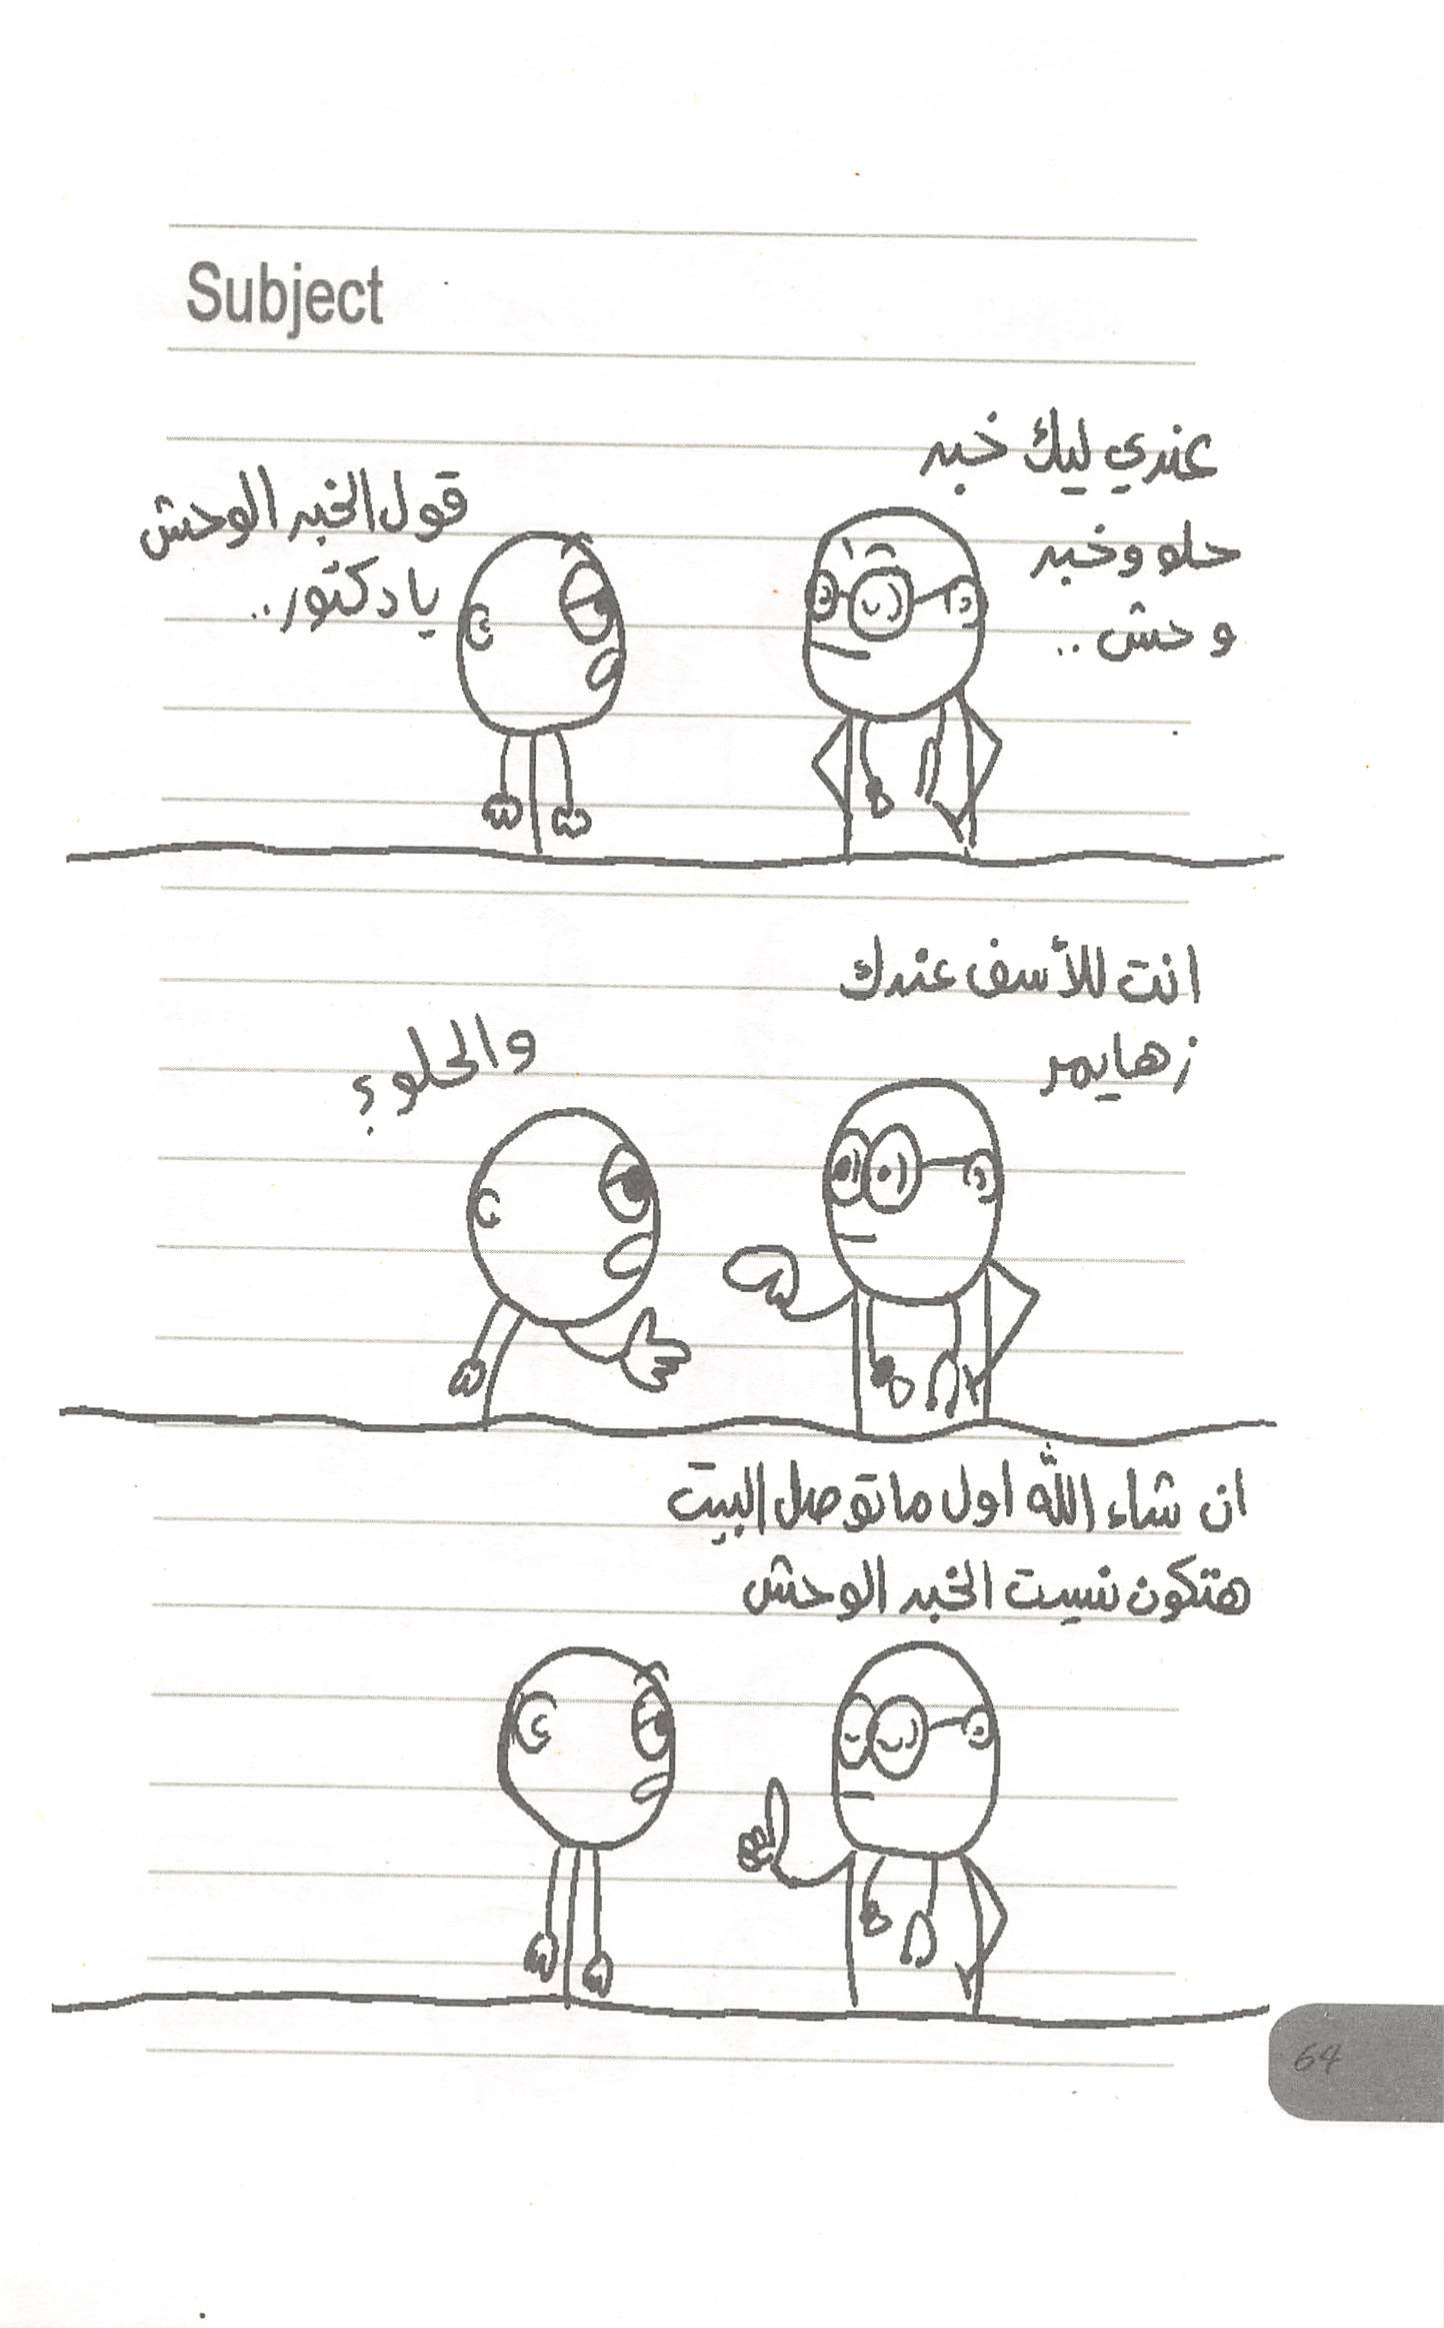 Subject
عندي ليك خبر
حلو وخبر
وحش ..
قول الخبر الوحش
يا دكتور ..
انت للأسف عندك
زهايمر
والحلو ؟
ان شاء الله اول ما توصل البيت
هتكون نسيت الخبر الوحش
64